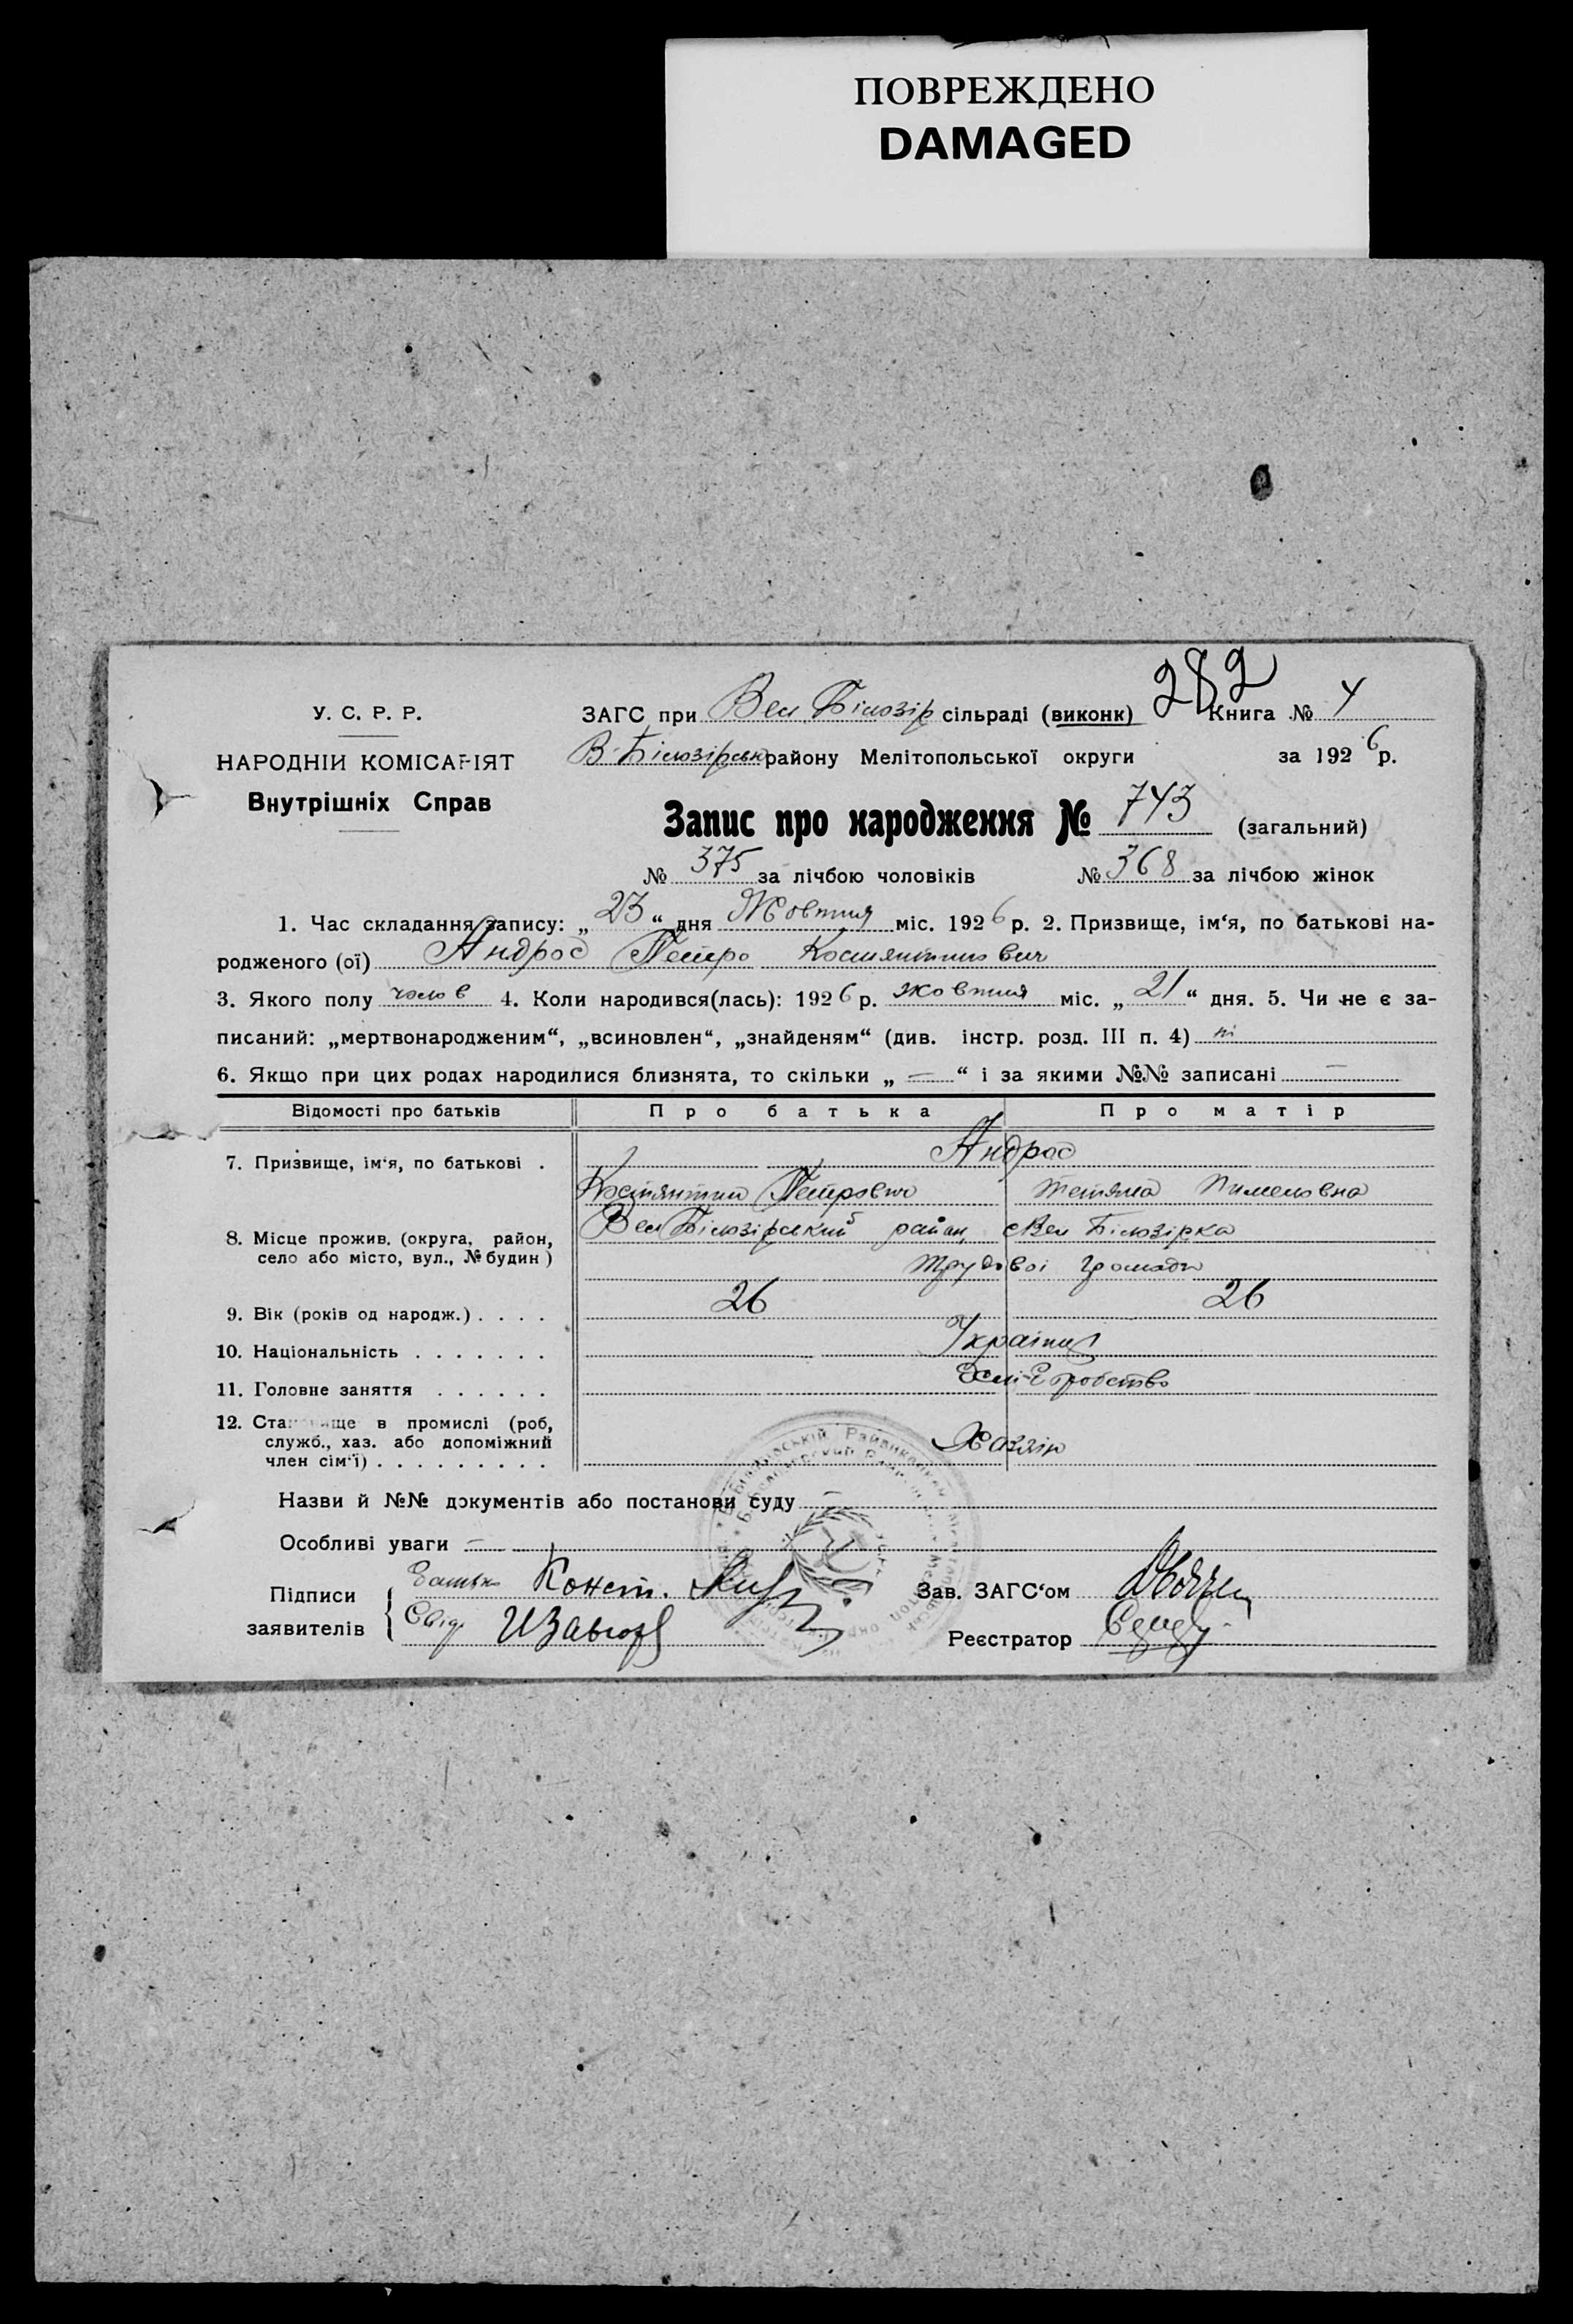 ПОВРЕЖДЕНО
DAMAGED
282
У. С. Р. Р.
ЗАГС при Вел Білозір сільраді (виконк) Книга № 4
НАРОДНІЙ КОМІСАРІЯТ
В-Білозірськ району Мелітопольської округи за 1926 р.
Внутрішніх Справ
Запис про народження № 743 (загальний)
№ 375 за лічбою чоловіків № 368 за лічбою жінок
1. Час складання запису: „23“ дня Жовтня міс. 1926 р. 2. Призвище, ім‘я, по батькові на-
родженого (ої) Андрос Петро Костянтинович
3. Якого полу чолов 4. Коли народився(лась): 1926 р. жовтня міс. „21“ дня. 5. Чи не є за-
писаний: „мертвонародженим“, „всиновлен“, „знайденям“ (див. інстр. розд. III п. 4) ні
6. Якщо при цих родах народилися близнята, то скільки „—“ і за якими №№ записані —
Відомості про батьків Про батька Про матір
7. Призвище, ім‘я, по батькові . Андрос
Костянтин Петрович Тетяна Пименовна
8. Місце прожив. (округа, район, Вел Білозірський район, с Вел Білозірка
село або місто, вул., № будин) трудової громади
9. Вік (років од народж.) . . . . 26 26
10. Національність . . . . . . . Україн
11. Головне заняття . . . . . .
12. Становище в промислі (роб,
служб., хаз. або допоміжний Хазяін
член сім‘ї) . . . . . . . . .
Назви й №№ документів або постанови суду
Особливі уваги —
Підписи Батько Конст.
заявителів Свід.
Зав. ЗАГС‘ом
Реєстратор